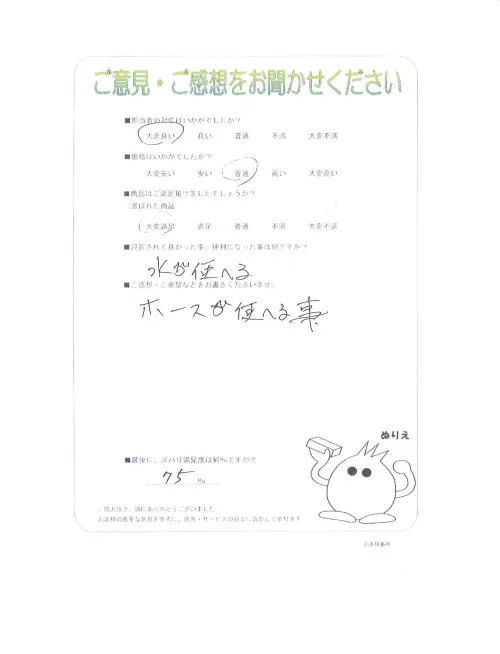 ご意見・ご感想をお聞かせください
■担当者の対応はいかがでしたか?
大変良い 良い 普通 不満 大変不満
■価格はいかがでしたか?
大変安い 安い 普通 高い 大変高い
■商品はご満足頂けましたでしょうか?
選ばれた商品
大変満足 満足 普通 不満 大変不満
■設置されて良かった事、便利になった事は何ですか?
水が使へる
■ご感想・ご要望などをお書きくださいませ。
ホースが使へる事
ぬりえ
■最後に、ズバリ満足度は何%ですか?
75 %
ご協力頂き、誠にありがとうございました
お客様の貴重な意見を参考に、改善・サービスの向上に活かして参ります
お客様番号